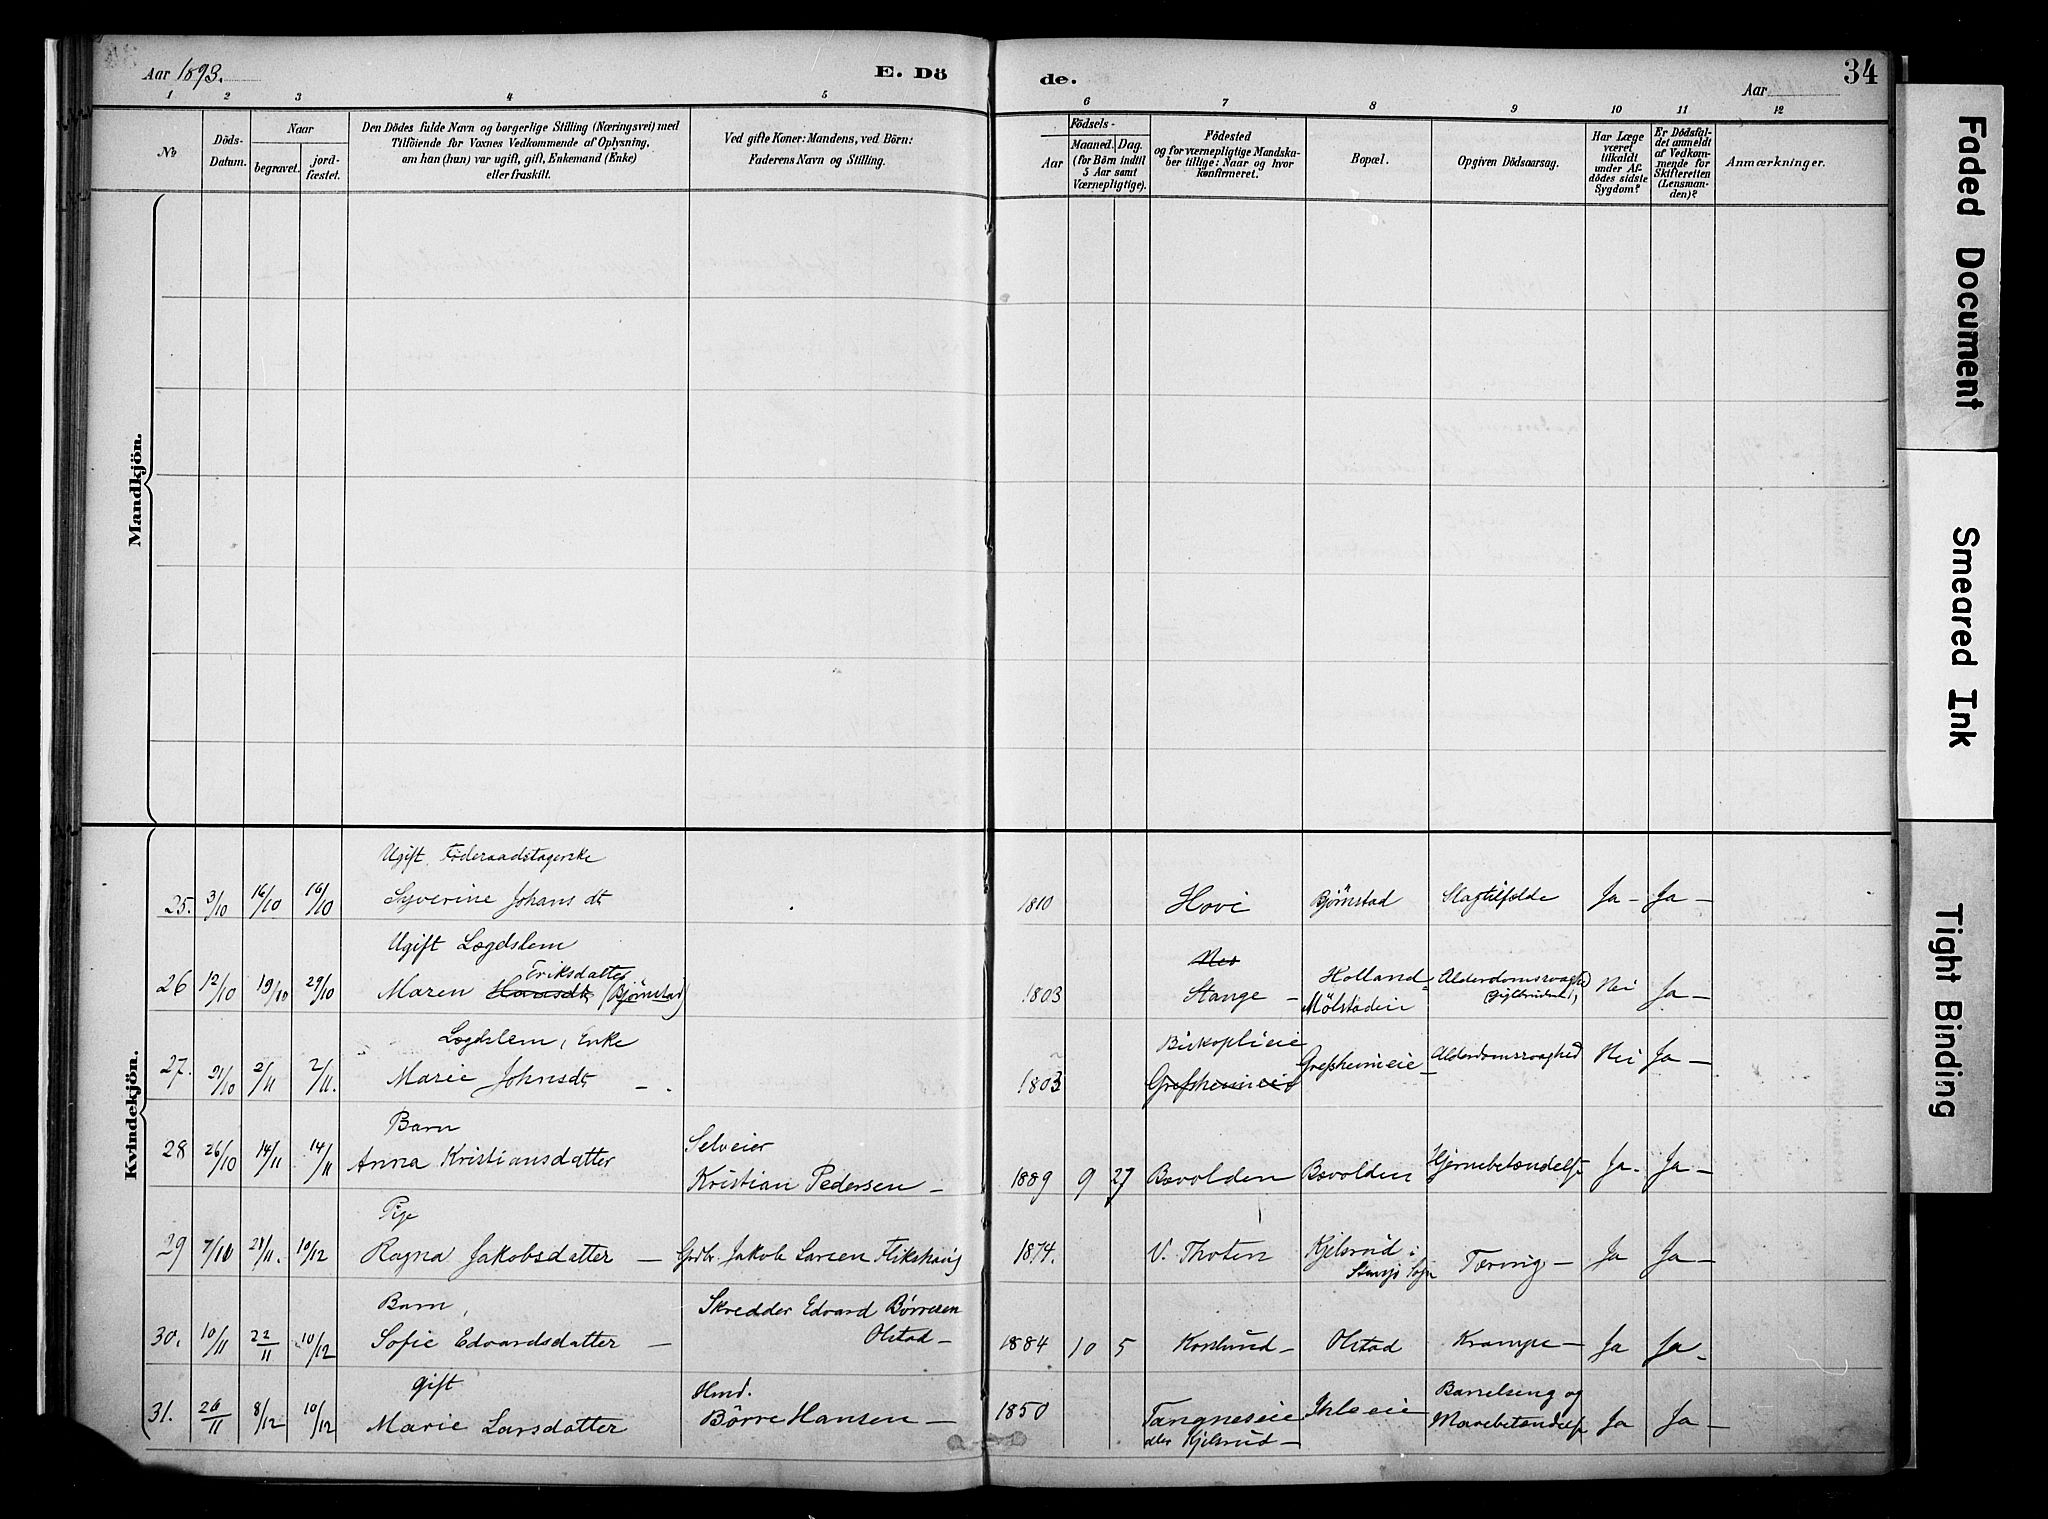 Aar 1893.
E. Dö
de.
Aar
34
1 2 3 4 5 6 7 8 9 10 11 12
No
Döds-
Datum.
Naar
begravet.
jord-
fæstet.
Den Dödes fulde Navn og borgerlige Stilling (Næringsvei) med
Tilföiende for Voxnes Vedkommende af Oplysning,
om han (hun) var ugift, gift, Enkemand (Enke)
eller fraskilt.
Ved gifte Koner: Mandens, ved Börn:
Faderens Navn og Stilling.
Födsels-
Aar
Maaned. Dag.
(for Börn indtil
5 Aar samt
Værnepligtige).
Födested
og for værnepligtige Mandska-
ber tillige: Naar og hvor
konfirmeret.
Bopæl.
Opgiven Dödsaarsag.
Har Læge
været
tilkaldt
under Af-
dödes sidste
Sygdom?
Er Dödsfal-
det anmeldt
af Vedkom-
mende for
Skifteretten
(Lensman-
den)?
Anmærkninger.
Mandkjön.
Kvindekjön.
Ugift Føderaadstagerske
25. 3/10 16/10 16/10 Syverine Johansdt 1810 Hovi Bjørnstad Slagtilfælde Ja - Ja -
Ugift Lægdslem
Eriksdatter
26 12/10 19/10 29/10 Maren Hansdt (Bjørnstad) 1803 Nes
Stange - Holland
Mølstadeie Alderdomssvaghed Nei Ja -
Lægdslem, Enke
27. 21/10 2/11 2/11. Marie Johnsdt - . 1803 Biskoplieie
Grefsheimeie Grefsheimeie - Alderdomssvaghed Nei Ja -
Barn
28 26/10 14/11 14/11 Anna Kristiansdatter Selveier
Kristian Pedersen - 1889 9 27 Bævolden Bævolden Hjernebetændelse Ja - Ja -
Pige
29 7/11 21/11. 10/12 Ragna Jakobsdatter - Grdbr. Jakob Larsen Flikshaug 1874. V. Thoten Kjelsrud i
Sogn Tæring - Ja Ja -
Barn,
30. 10/11 22/11 10/12 Sofie Edvardsdatter - Skredder Edvard Børresen
Olstad - 1884 10 5 Korslund - Olstad Krampe - Ja Ja -
gift
31. 26/11 8/12 10/12 Marie Larsdatter Hmd.
Børre Hansen - 1850 Tangneseie
eller Kjelsrud - Ihleeie Barselseng og
Mavebetændelse Ja Ja -
Faded Document
Smeared Ink
Tight Binding